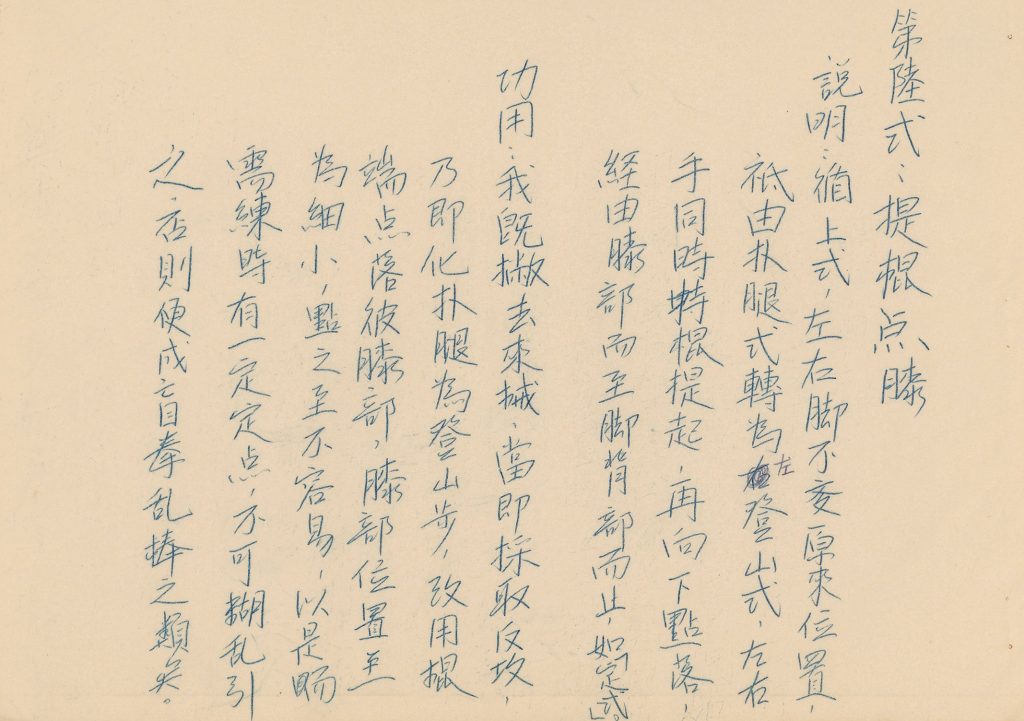 第陸式：提棍点膝
説明：循上式，左右脚不变原來位置，
祇由扑腿式轉為左登山式，左右
手同時轉棍提起，再向下點落，
経由膝部而至脚背部而止，如「定式」。
功用：我既撇去來械，當即採取反攻，
乃即化扑腿為登山步，改用棍
端点落彼膝部，膝部位置至
為細小，點之至不容易，以是
需練時有一定定点，不可糊乱引
之，否則便成盲拳乱棒之類矣。